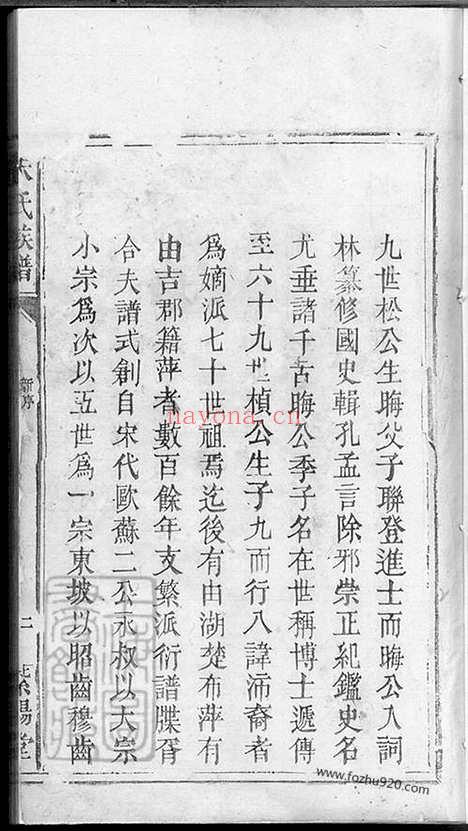 九世松公生晦父子聯登進士而晦公入詞
林纂修國史輯孔孟言除邪崇正紀鑑史名
尤垂諸千古晦公季子名在世稱博士遞傳
至六十九世楨公生子九而行八諱沛裔者
為嫡派七十世祖焉迄後有由湖楚布萍有
由吉郡籍萍者數百餘年支繁派衍譜牒胥
合夫譜式創自宋代歐蘇二公永叔以大宗
小宗為次以五世為一宗東坡以昭齒穆齒
氏族譜
新序
二
紫陽堂
nayona.cn
www.fozhu920.com